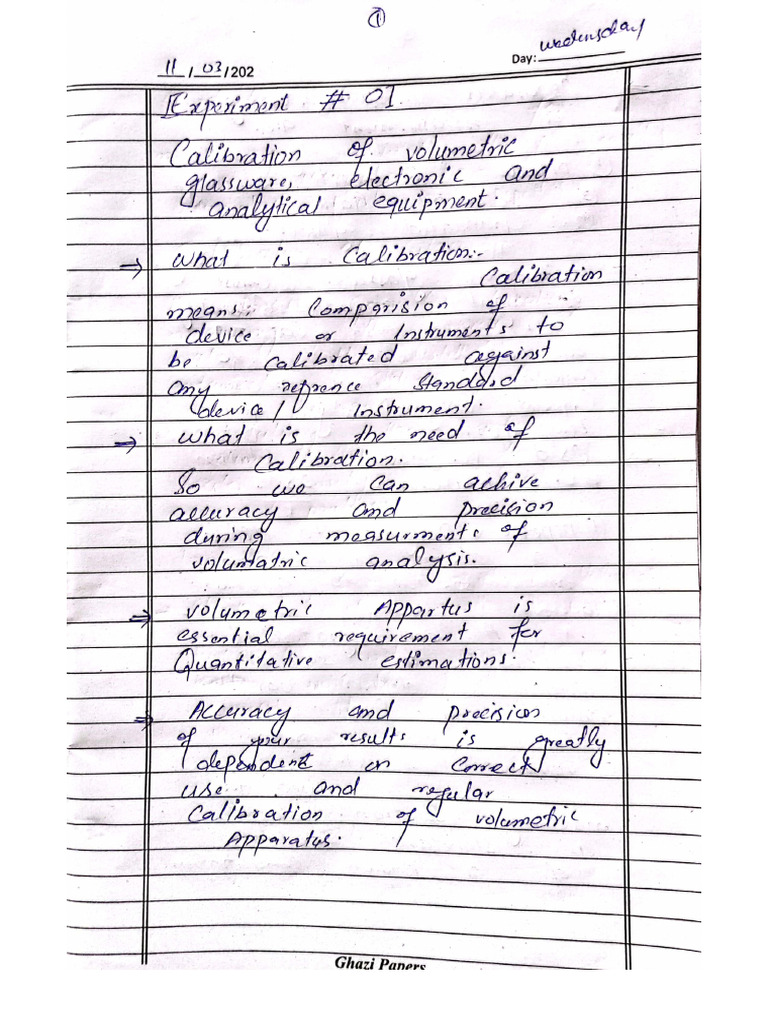 ①
Day: Wednesday
11/03/202
Experiment # 01.
Calibration of volumetric
glassware, electronic and
analytical equipment.
⇒ What is Calibration:-
Calibration
means: Comparision of
device or Instruments to
be Calibrated against
any refrence Standard
device/ Instrument.
⇒ What is the need of
Calibration.
So we can achive
accuracy and precision
during measurments of
volumatric analysis.
⇒ volumetric Appartus is
essential requirement for
Quantitative estimations.
⇒ Accuracy and precision
of your results is greatly
dependent on Correct
use and regular
Calibration of volumetric
Apparatus.
Ghazi Papers